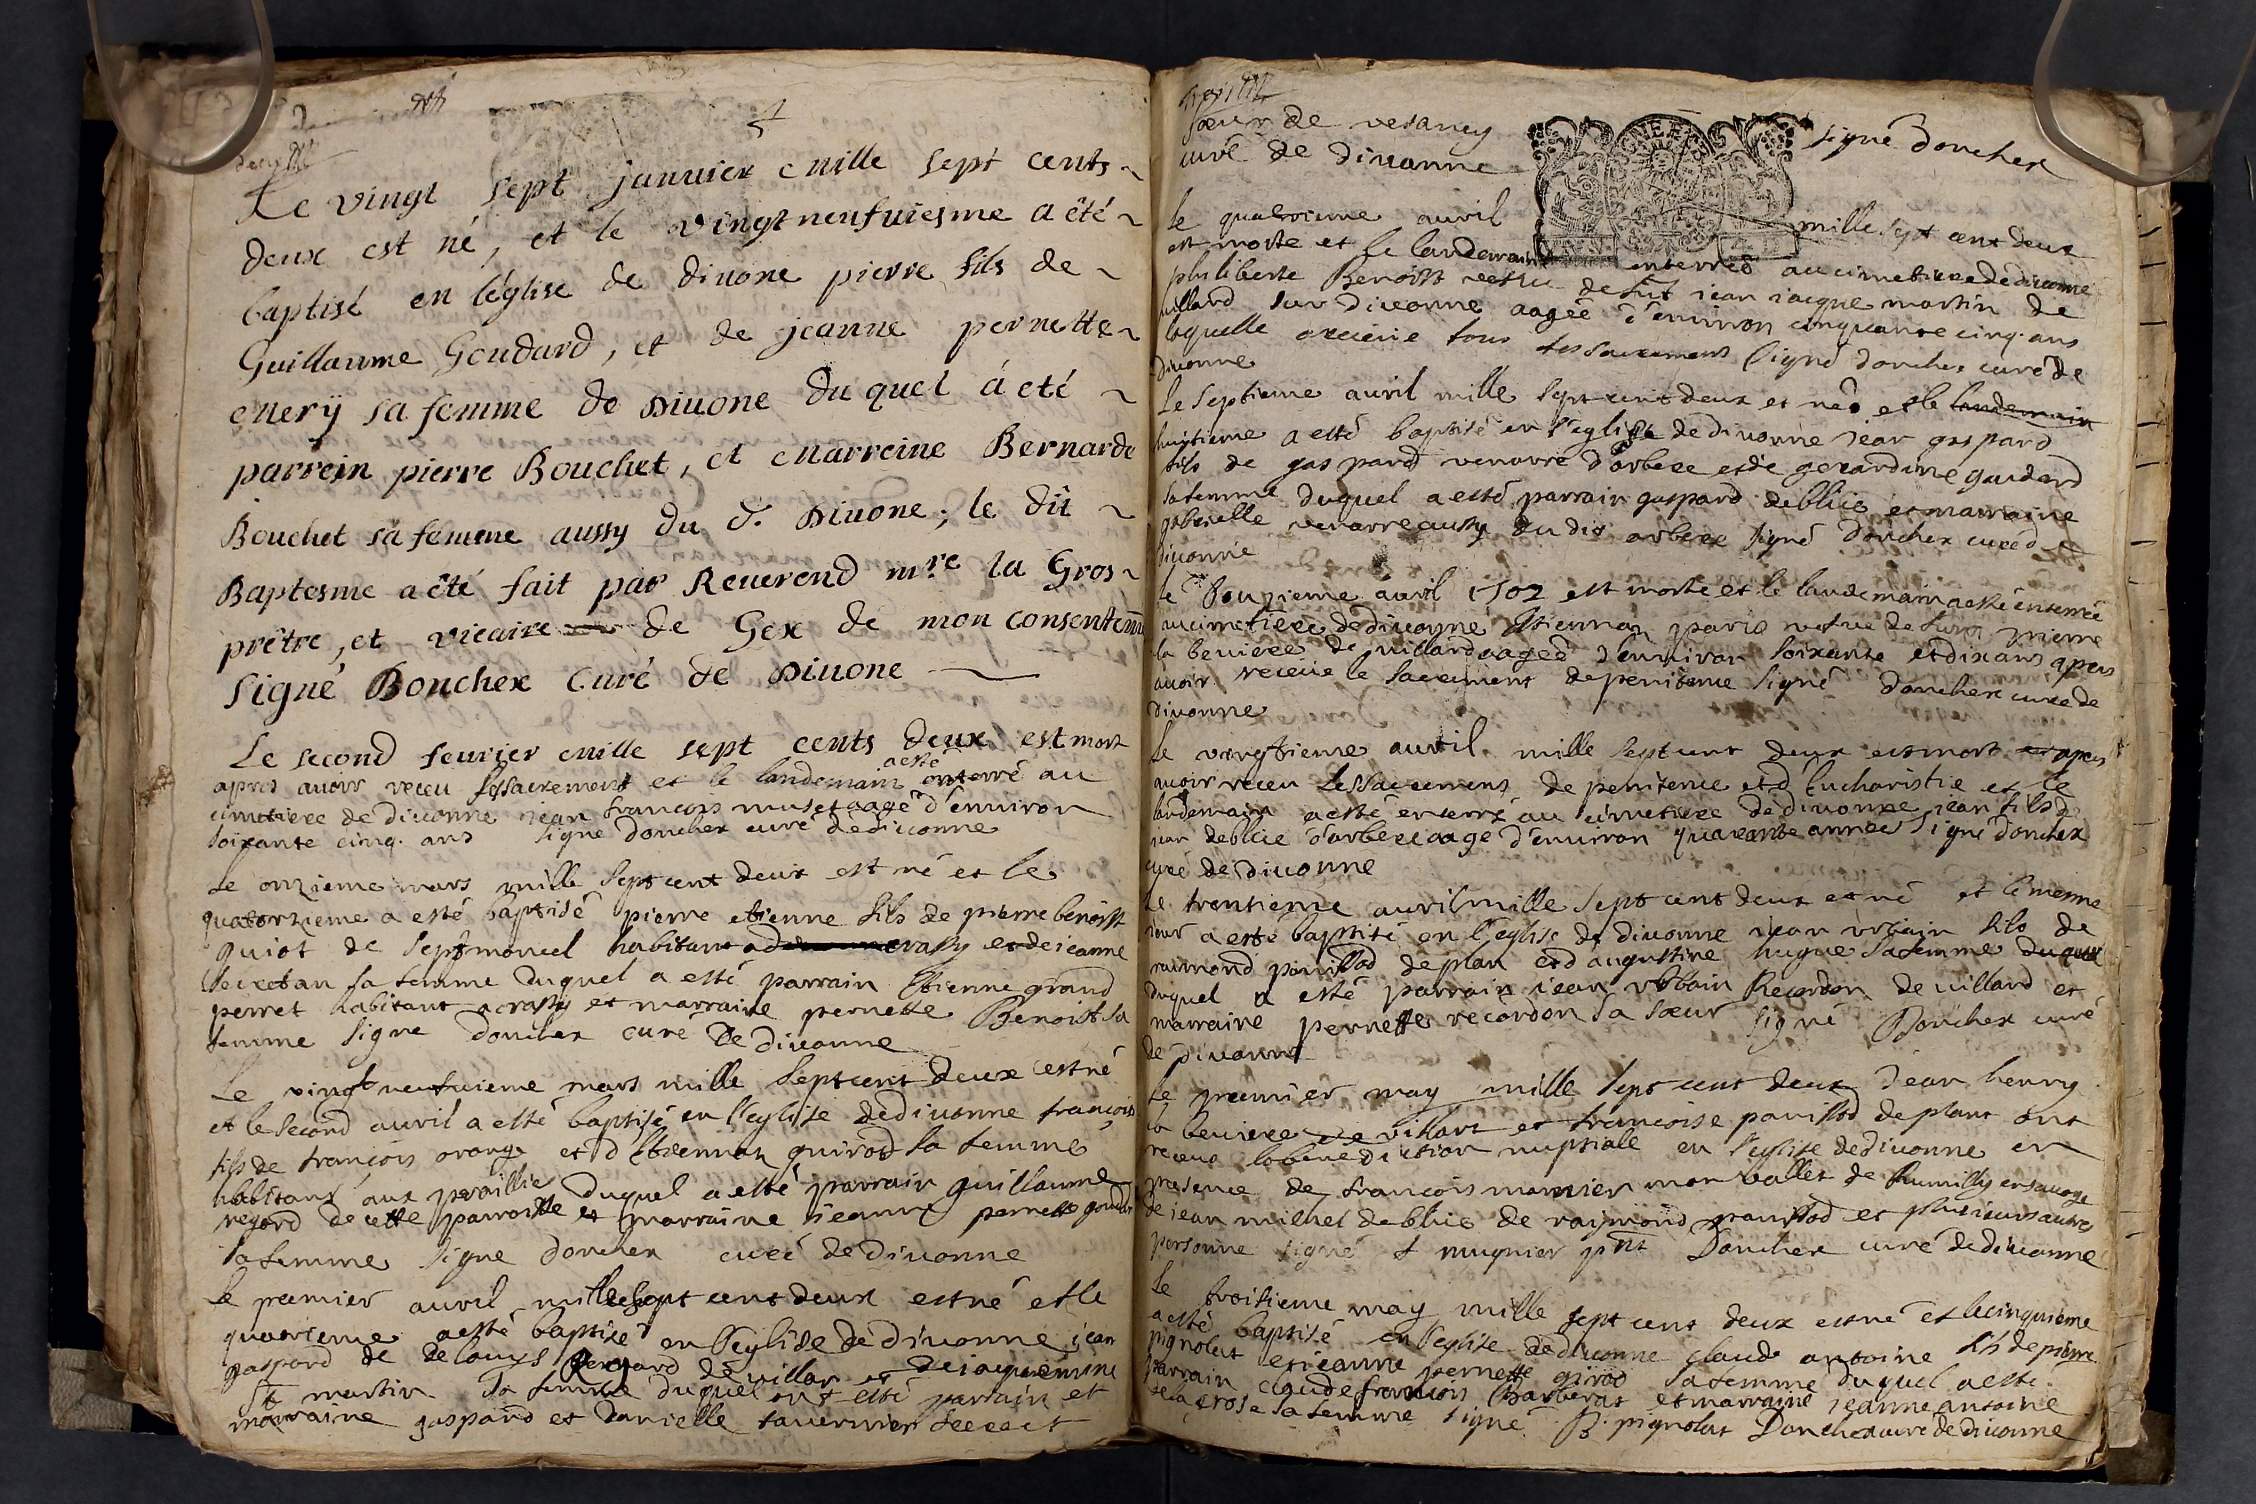 Le vingt sept januier mille sept cents
deux est né, et le vingt neufuiesme a été
baptisé en léglise de diuone pierre fils de
Guillaume Goudard, et de jeanne pernette
emerÿ sa femme de Diuone du quel á eté
parrein pierre Bouchet, et marreine Bernarde
Bouchet sa femme aussy du d. Diuone; le dit
Baptesme a été fait par Reuerend mre la Gros
prêtre, et vicaire de Gex de mon consentem
signé Bouchex Curé de Diuone
Le second feurier mille sept cents deux est mort
apres auoir receu ses sacrement et le landemain a esté enterré au
cimetiere de diuonne jean francois muset aagé d'enuiron
soixante cinq. ans signe donchex curé de diuonne
Le onzieme mars mille sept cent deux est né et le
quatorzieme a esté baptisé pierre etienne fils de pierre benoist
quiot de septmoncel habitant a crassy et de jeanne
secretan sa femme duquel a esté parrain Etienne grand
perret habitant a crassy et marraine pernette Benoist sa
femme signe donchex curé de diuonne
Le vingt neufuieme mars mille sept cent deux est né
et le second auril a esté baptisé en l'eglise de diuonne françois
fils de françois orange et d'Etiennaz guirod sa femme
habitant aux duquel a esté parrain guillaume
regard de cette parroisse et marraine jeanne pernette goudar
sa femme signe donchex curé de diuonne
Le premier auril mille sept cent deux est né et le
quatrieme a esté baptisé en l'eglise de diuonne jean
gaspard de de louys bernard de uillar et de jaquemine
St martin sa femme duquel ont esté parrain et
marraine gaspard et danielle tauernier
sœur de vesancy signe donchex
curé de diuonne
Le quatrieme auril mille sept cent deux
est morte et le landemain enterreé au cimetiere de diuonne
philiberte Benoist vefue de fut jean jacque martin de
uillard sur diuonne aageé d'enuiron cinquante cinq. ans
laquelle a receue tous les sacrement signé donchex curé de
diuonne
Le septieme auril mille sept cent deux et né et le landemain
huitieme a esté baptisé en l'eglise de diuonne jean gaspard
fils de gaspard venarre d'arbere et de gerardine goudard
sa femme duquel a esté parrain gaspard deblüe et marraine
gabrielle venarre aussy du dit arbere signé donchex curé de
diuonne
Le douzieme auril 1702 est morte et le landemain a esté enterreé
au cimetiere de diuonne Etiennaz paris vefue de fut pierre
la beuiere de uillard aageé d'enuiron soixante et dix ans apres
auoir receue le sacrement de penitence signé donchex curé de
diuonne
Le vingtieme auril mille sept cent deux est mort apres
auoir receu les sacremens de penitence et d'Eucharistie et le
landemain a esté enterré au cimetiere de diuonne jean fils de
jean deblüe d'arbere aage d'enuiron quarante anneé signé donchex
curé de diuonne
Le trentieme auril mille sept cent deux est né et le mesme
jour a esté baptisé en l'eglise de diuonne jean vrbain fils de
raimond panissod de plan et d'augustine hugue sa femme duquel
duquel a esté parrain jean vrbain Recordon de uillard et
marraine pernette recordon sa sœur signé Donchex curé
de diuonne
Le premier may mille sept cent deux jean henry
la beuiere de villart et francoise panissod de plant ont
receus la benediction nuptiale en l'eglise de diuonne en
presence de francois monnier mon vallet de Rumilly en sauoye
de jean michel deblüe de raymond panissod et plusieurs autres
personne signé f mugnier pnt Donchex curé de diuonne
Le troisieme may mille sept cent deux est né et le cinquieme
a esté baptisé en l'eglise de diuonne claude antoine fils de pierre
pignolat et jeanne pernette girod sa femme duquel a esté
parrain claude francois Barberat et marraine jeanne antoine
de la crose sa femme signé B. pignolat Donchex curé de diuonne